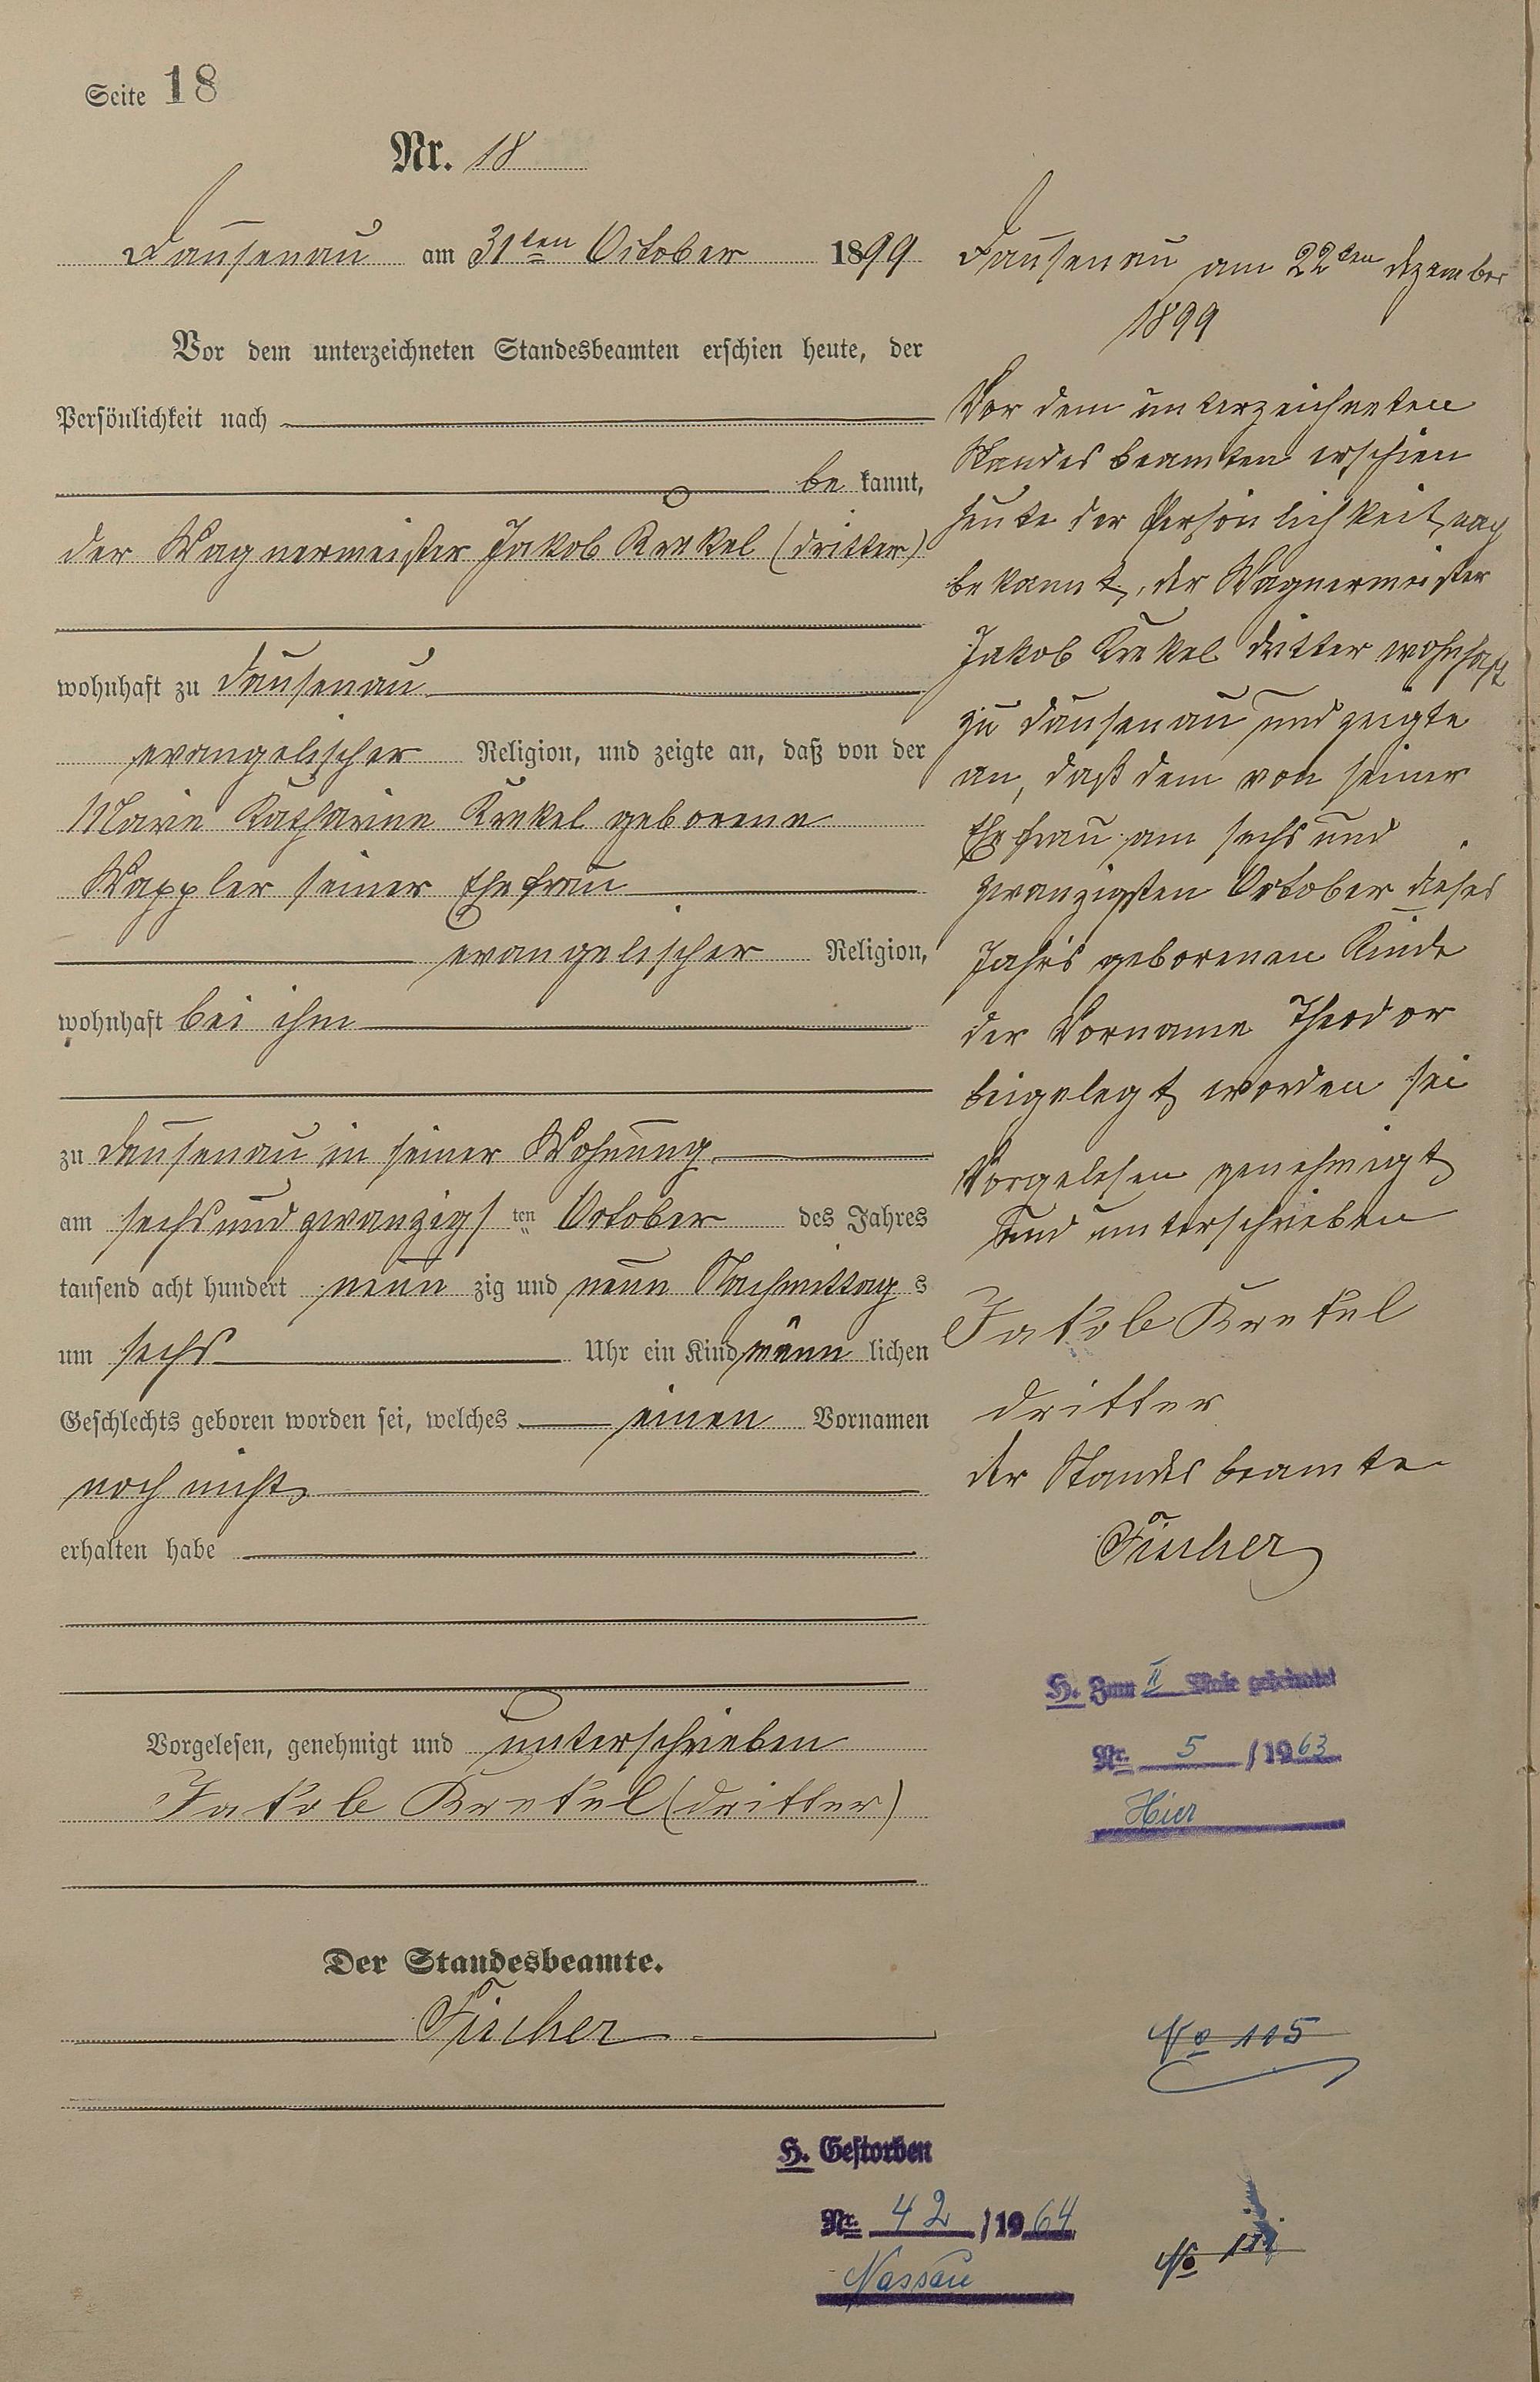 Seite 18
Nr. 18
Dausenau am 31ten October 1899
Vor dem unterzeichneten Standesbeamten erschien heute, der
Persönlichkeit nach
be kannt,
der Wagnermeister Jakob Krekel (dritter)
wohnhaft zu Dausenau
evangelischer Religion, und zeigte an, daß von der
Marie Katharine Krekel geborene
Kappler seiner Ehefrau
evangelischer Religion,
wohnhaft bei ihm
zu Dausenau in seiner Wohnung
am sechs und zwanzigs ten October des Jahres
tausend acht hundert neun zig und neun Nachmittag s
um sechs Uhr ein Kind männ lichen
Geschlechts geboren worden sei, welches einen Vornamen
noch nicht
erhalten habe
Vorgelesen, genehmigt und unterschrieben
Jakob Krekel (dritter)
Der Standesbeamte.
Fischer
H. Gestorben
Nr. 42 / 1964
Nassau
Dausenau am 22ten Dezember
1899
Vor dem unterzeichneten
Standes beamten erschien
heute der Persönlichkeit nach
bekannt, der Wagnermeister
Jakob Krekel dritter wohnhaft
zu Dausenau und zeigte
an, daß dem von seiner
Ehefrau am sechs und
zwanzigsten October dieses
Jahrs geborenen Kinde
der Vorname Theodor
beigelegt worden sei
Vorgelesen genehmigt
und unterschrieben
Jakob Krekel
dritter
der Standesbeamte
Fischer
H. Zum II Male geheiratet
Nr. 5 / 1963
Hier
No 115
No